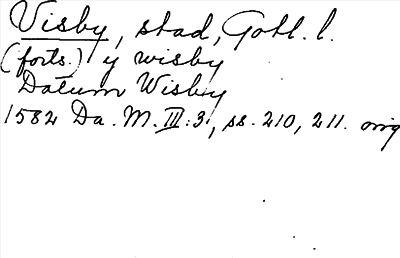 Visby, stad, Gotl. l.
(forts.) y wisby
Datum Wisby
1582 Da. M. III:3, ss. 210, 211. orig